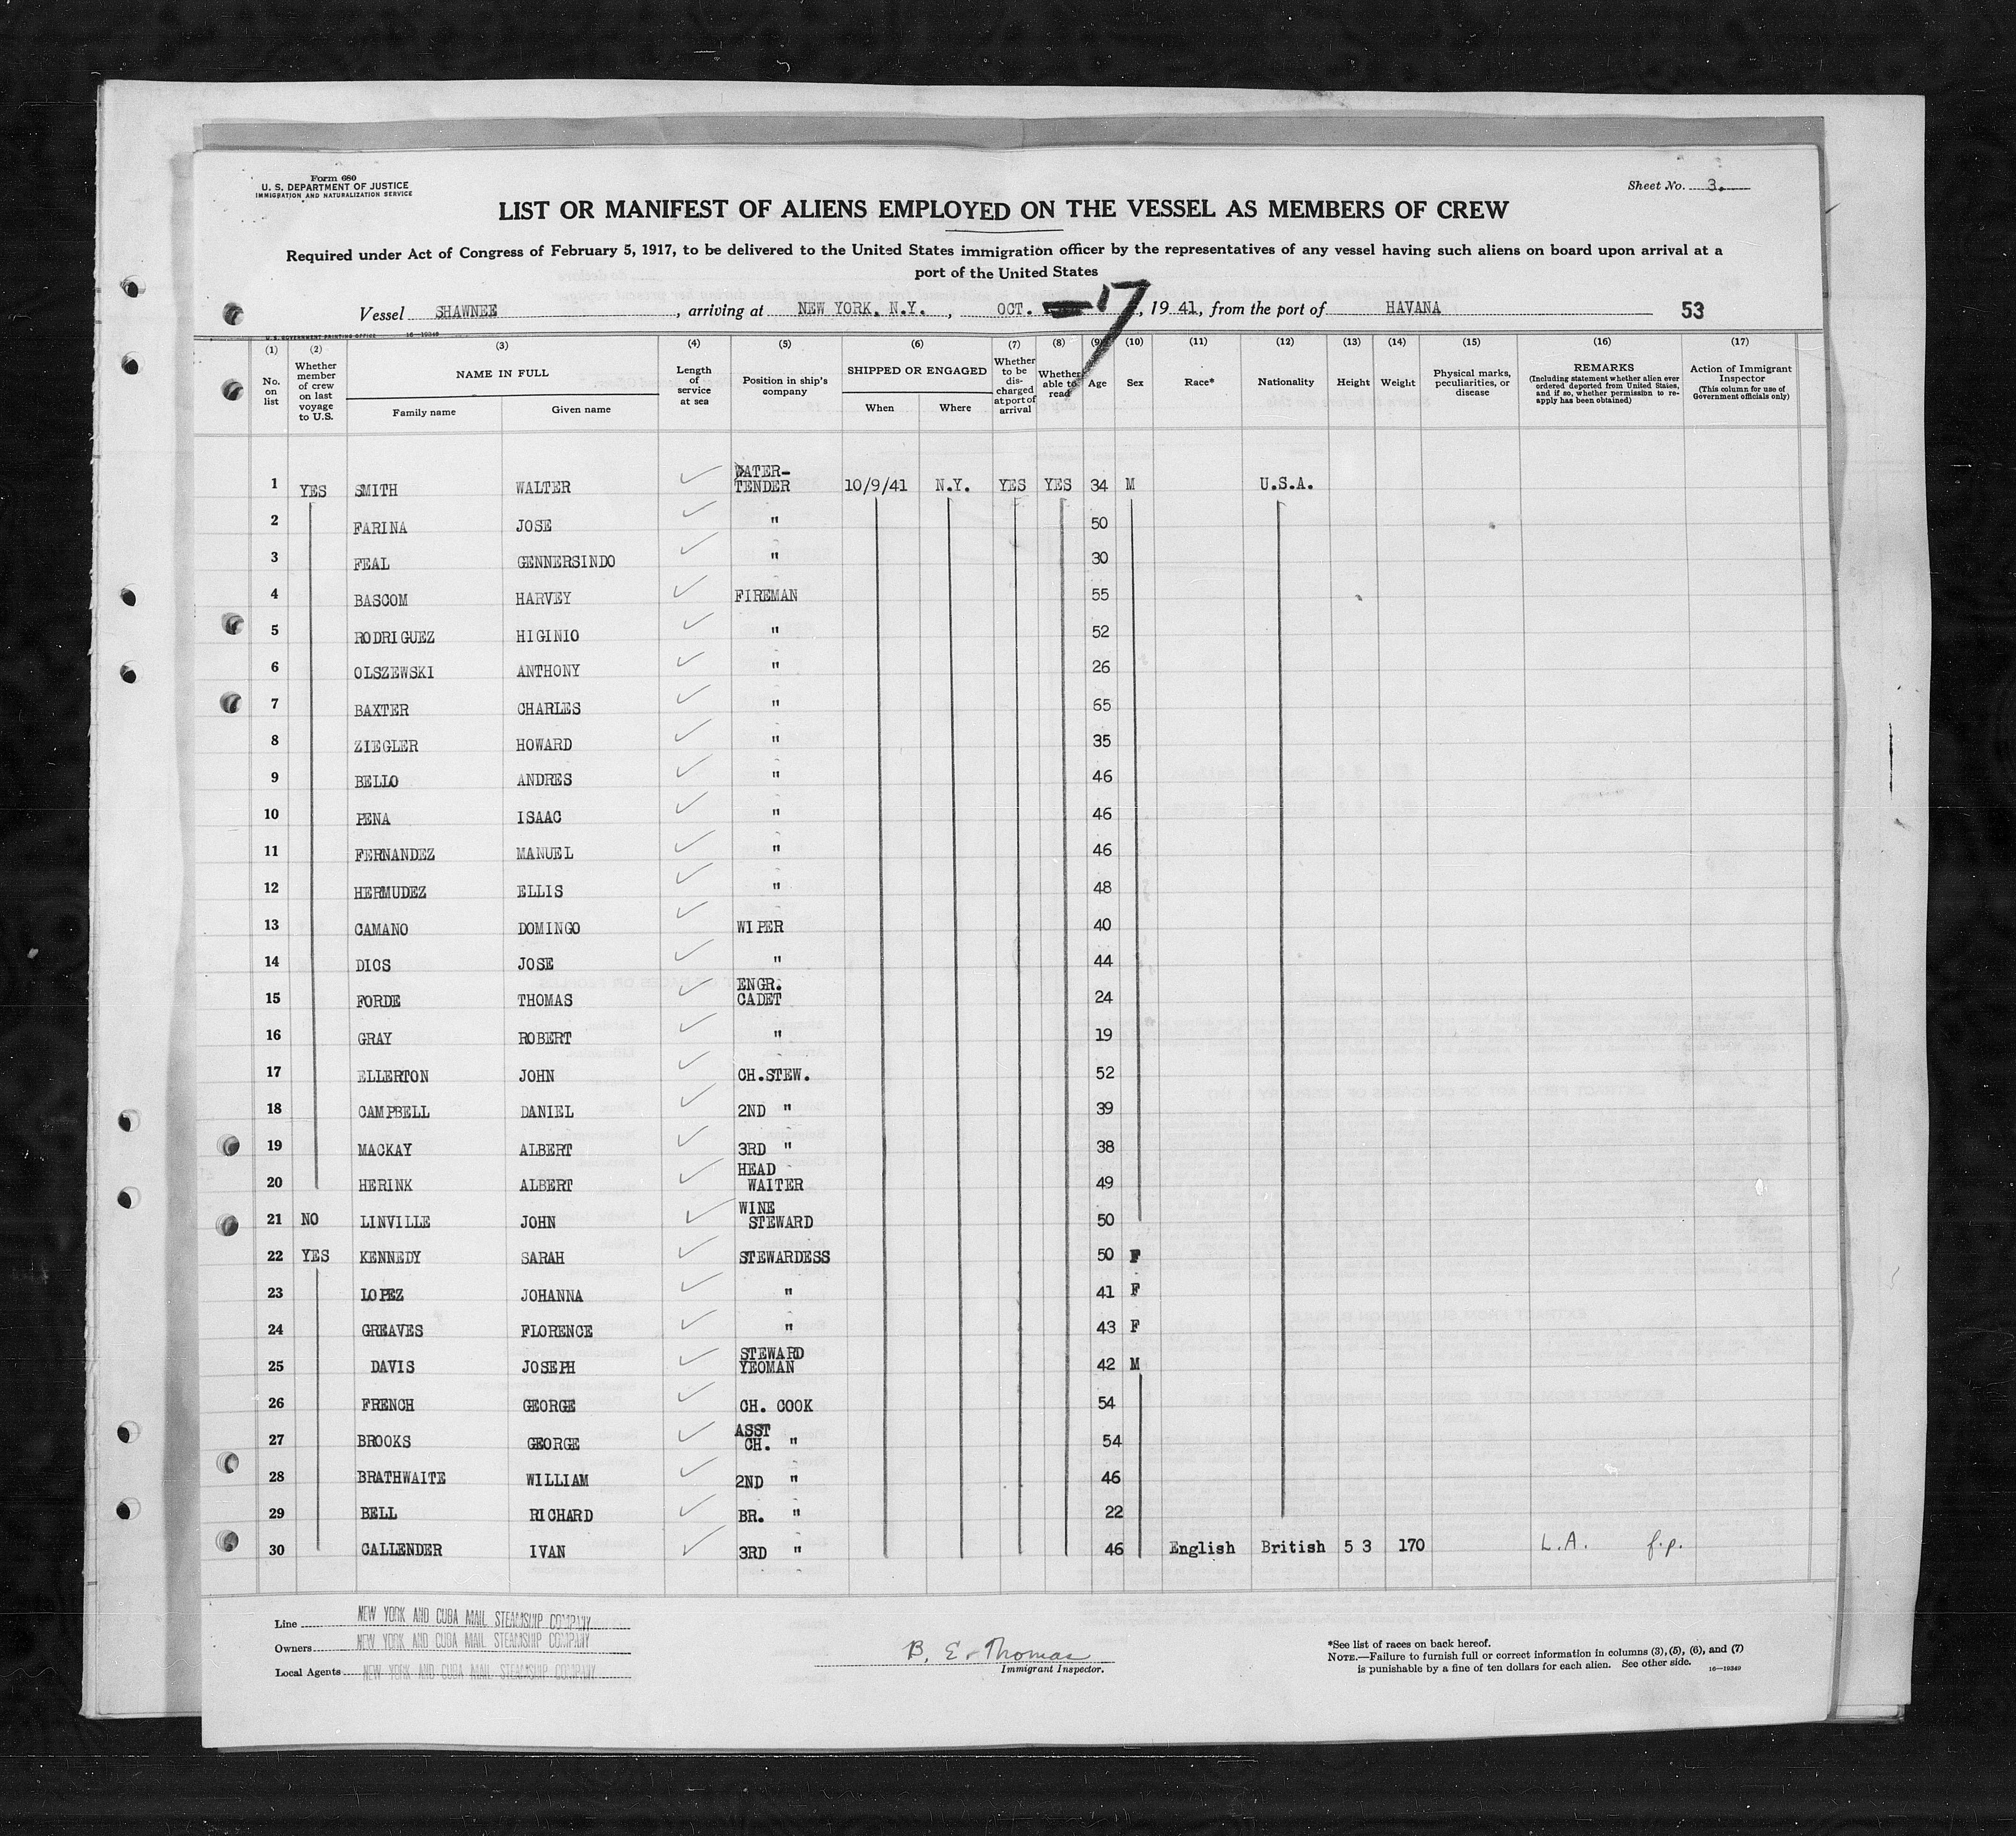 Form 680
U. S. DEPARTMENT OF JUSTICE
IMMIGRATION AND NATURALIZATION SERVICE
Sheet No. 3.
LIST OR MANIFEST OF ALIENS EMPLOYED ON THE VESSEL AS MEMBERS OF CREW
Required under Act of Congress of February 5, 1917, to be delivered to the United States immigration officer by the representatives of any vessel having such aliens on board upon arrival at a
port of the United States
Vessel SHAWNEE, arriving at NEW YORK. N.Y., OCT. 17, 1941, from the port of HAVANA 53
U. S. GOVERNMENT PRINTING OFFICE 16—19349
(1) (2) (3) (4) (5) (6) (7) (8) (9) (10) (11) (12) (13) (14) (15) (16) (17)
No. on list
Whether member of crew on last voyage to U.S.
NAME IN FULL
Family name Given name
Length of service at sea
Position in ship's company
SHIPPED OR ENGAGED
When Where
Whether to be discharged at port of arrival
Whether able to read
Age Sex Race* Nationality Height Weight
Physical marks, peculiarities, or disease
REMARKS
(Including statement whether alien ever ordered deported from United States, and if so, whether permission to re-apply has been obtained)
Action of Immigrant Inspector
(This column for use of Government officials only)
1 YES SMITH WALTER WATER-TENDER 10/9/41 N.Y. YES YES 34 M U.S.A.
2 FARINA JOSE " 50
3 FEAL GENNERSINDO " 30
4 BASCOM HARVEY FIREMAN 55
5 RODRIGUEZ HIGINIO " 52
6 OLSZEWSKI ANTHONY " 26
7 BAXTER CHARLES " 65
8 ZIEGLER HOWARD " 35
9 BELLO ANDRES " 46
10 PENA ISAAC " 46
11 FERNANDEZ MANUEL " 46
12 HERMUDEZ ELLIS " 48
13 CAMANO DOMINGO WIPER 40
14 DIOS JOSE " 44
15 FORDE THOMAS ENGR. CADET 24
16 GRAY ROBERT " 19
17 ELLERTON JOHN CH.STEW. 52
18 CAMPBELL DANIEL 2ND " 39
19 MACKAY ALBERT 3RD " 38
20 HERINK ALBERT HEAD WAITER 49
21 NO LINVILLE JOHN WINE STEWARD 50
22 YES KENNEDY SARAH STEWARDESS 50 F
23 LOPEZ JOHANNA " 41 F
24 GREAVES FLORENCE " 43 F
25 DAVIS JOSEPH STEWARD YEOMAN 42 M
26 FRENCH GEORGE CH. COOK 54
27 BROOKS GEORGE ASST CH. " 54
28 BRATHWAITE WILLIAM 2ND " 46
29 BELL RICHARD BR. " 22
30 CALLENDER IVAN 3RD " 46 English British 5 3 170 L.A. f.p.
Line NEW YORK AND CUBA MAIL STEAMSHIP COMPANY
Owners NEW YORK AND CUBA MAIL STEAMSHIP COMPANY
Local Agents NEW YORK AND CUBA MAIL STEAMSHIP COMPANY
B. E. Thomas
Immigrant Inspector.
*See list of races on back hereof.
NOTE.—Failure to furnish full or correct information in columns (3), (5), (6), and (7)
is punishable by a fine of ten dollars for each alien. See other side. 16—19349